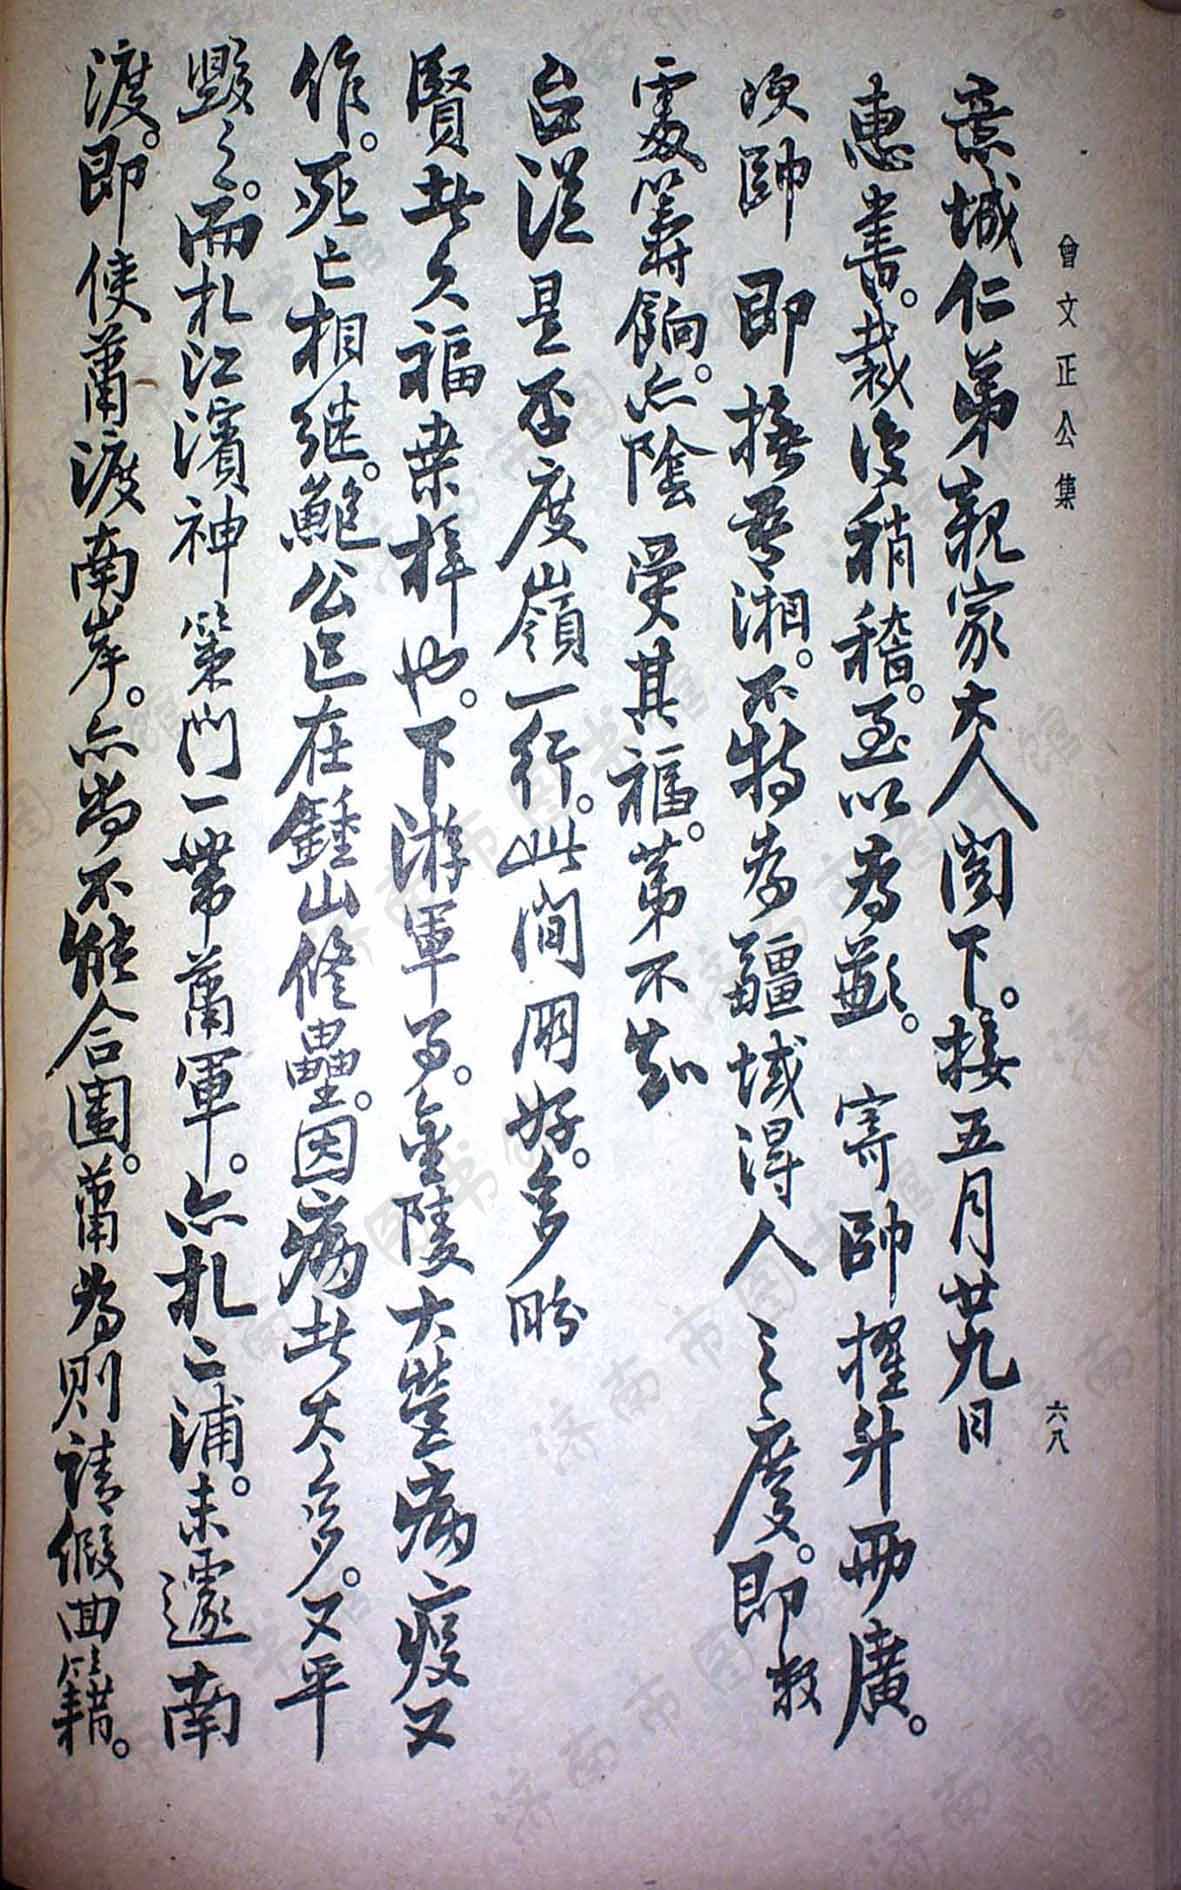 曾文正公集
六八
意城仁弟親家大人閣下。接五月廿九日
惠書。裁復稍稽。至以為歉。寄帥擢升兩廣。
次帥即撫吾湘。不特為疆域得人之慶。即敝
處籌餉。亦陰受其福。第不知
台從是否度嶺一行。此間朋好。多盼
賢者久福桑梓也。下游軍事。金陵大營病疫又
作。死亡相繼。鮑公已在鍾山修壘。因病者太多。又平
毀之。而札江濱神策門一帶蕭軍。亦札二浦。未遽南
渡。即使蕭渡南岸。亦尚不能合圍。蕭為則請假回籍。